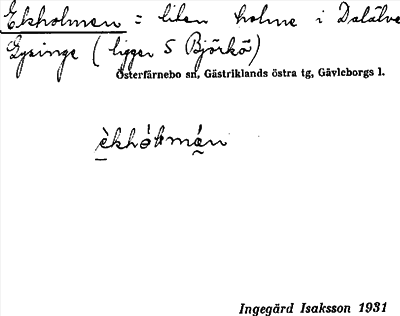 Ekholmen = liten holme i Dalälve
Gysinge (ligger S Björkö)
Österfärnebo sn, Gästriklands östra tg, Gävleborgs l.
èkhólmán
Ingegärd Isaksson 1931